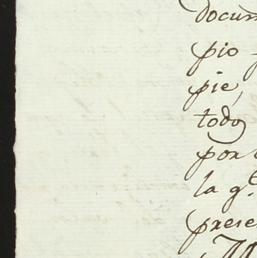 docum
pio
pie,
todo
por
la g.e
prese